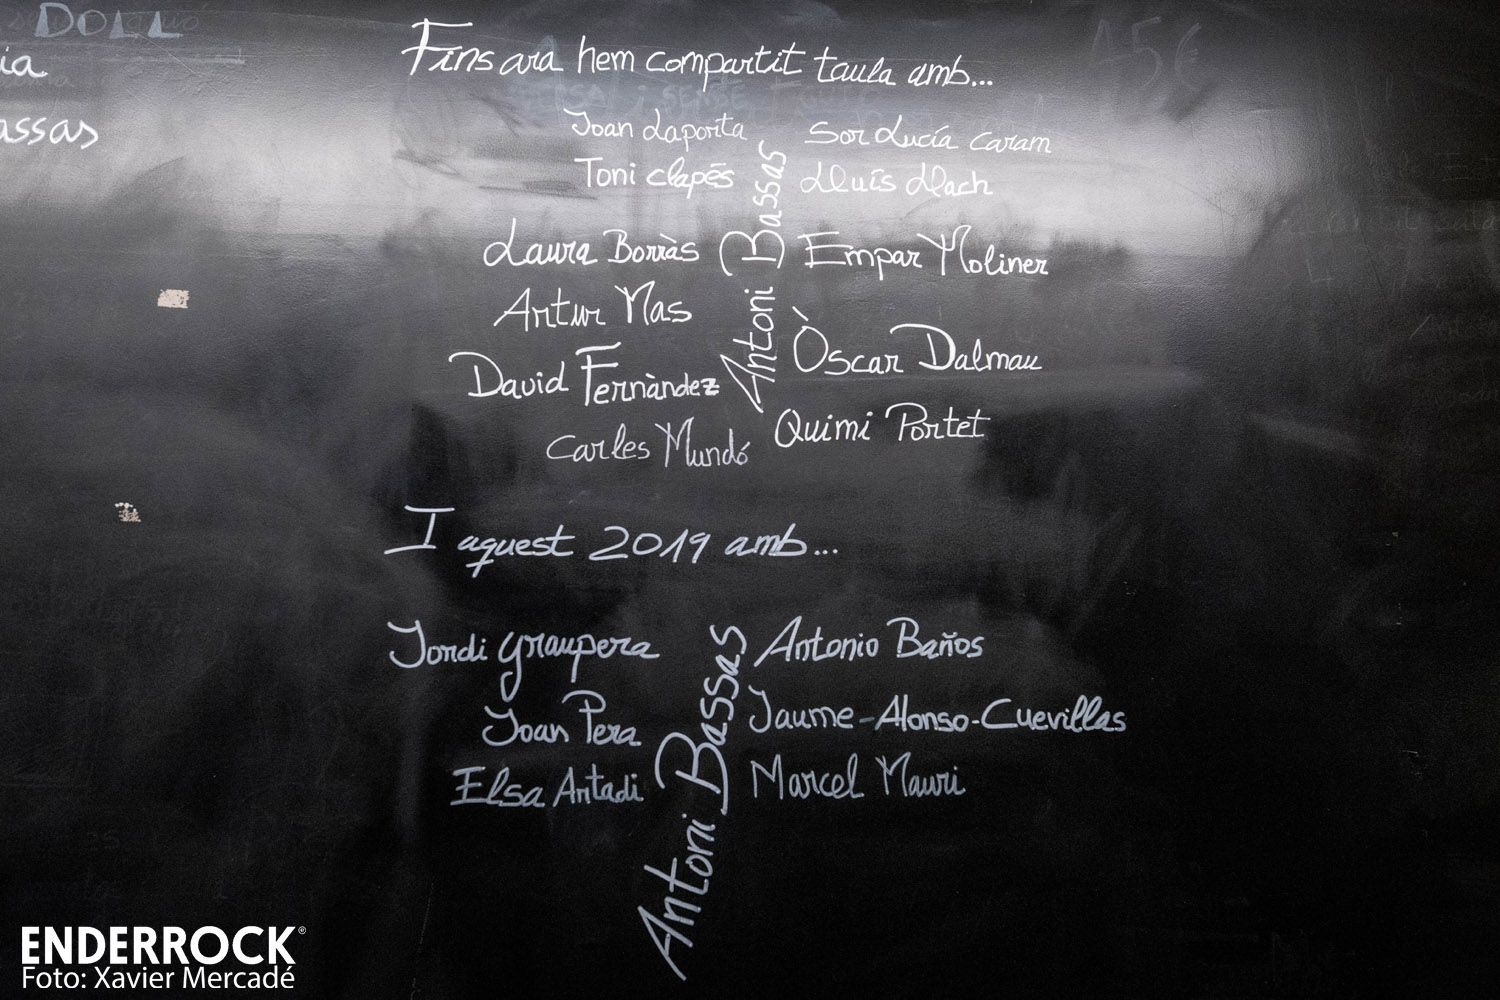 DOLL
ia
assas
Fins ara hem compartit taula amb...
Joan Laporta
Sor Lucía Caram
Toni Clapés
Lluís Llach
Laura Borràs
Empar Moliner
Artur Mas
Òscar Dalmau
David Fernàndez
Quimi Portet
Carles Mundó
Antoni Bassas
I aquest 2019 amb...
Jordi Graupera
Antonio Baños
Joan Pera
Jaume-Alonso-Cuevillas
Elsa Artadi
Marcel Mauri
Antoni Bassas
ENDERROCK®
Foto: Xavier Mercadé